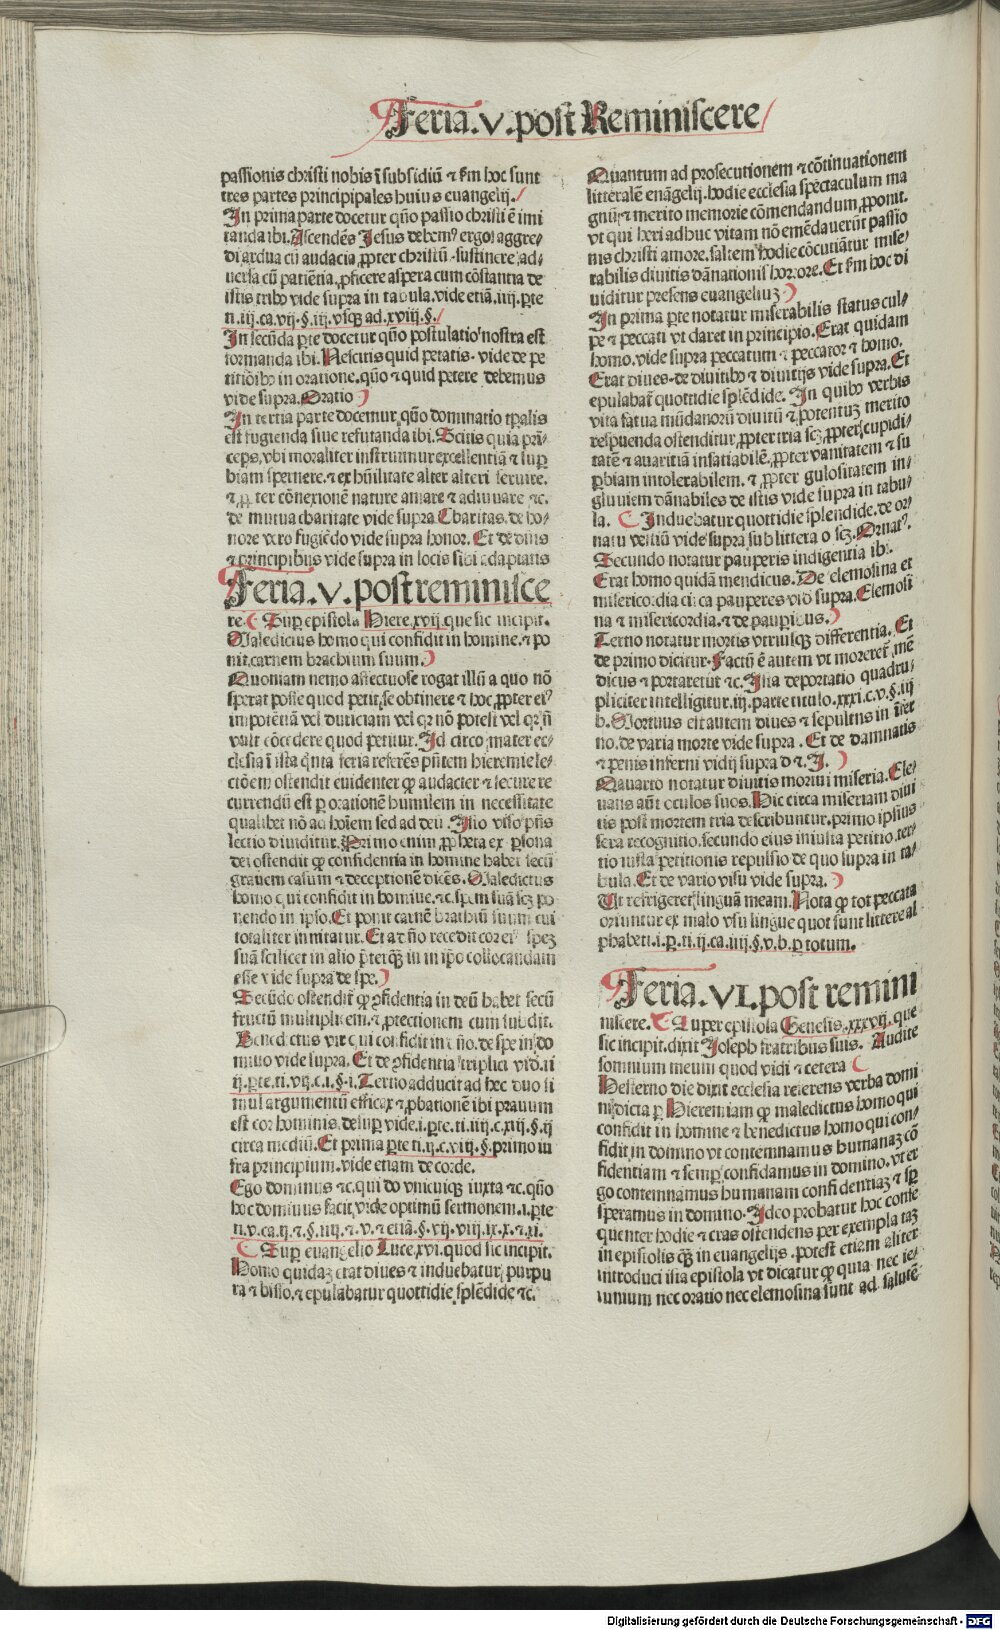 Feria.v.post Reminiscere
passionis christi nobis ī subsidiū ⁊ ẜm hoc sunt
tres partes principipales huius euangelij.
In prima parte docetur qūo passio christi ē imi
tanda ibi. Ascendēs Jesus debemꝰ ergo aggre⸗
di ardua cū audacia ꝓpter christū. sustinere ad⸗
uersa cū patiētia, ꝑficere aspera cum cōstantia de
istis tribꝰ vide supra in tabula. vide etiā. iiij. ꝑte
ti. iij. ca. vij. §. iij. vsqꝫ ad. xviij. §.
In secūda ꝑte docetur qūo postulatio nostra est
formanda ibi. Nescitis quid petatis. vide de pe
titiōibꝰ in oratione. qūo ⁊ quid petere debemus
vide supra. Oratio
In tertia parte docemur qūo dominatio tꝑalis
est fugienda siue refutanda ibi. Scitis quia prī⸗
ceps, vbi moraliter instruimur excellentiā ⁊ suꝑ
biam spernere. ⁊ ex hūilitate alter alteri seruire.
⁊ ꝓpter cōnexionē nature amare ⁊ adiuuare ⁊c.
de mutua charitate vide supra Charitas. de ho⸗
nore vero fugiēdo vide supra honor. Et de dn̄is
⁊ principibus vide supra in locis sibi adaptatis
Feria.v.post reminisce
re. Suꝑ epistola Hiere. xvij. que sic incipit.
Maledictus homo qui confidit in homine. ⁊ po
nit carnem brachium suum.
Quoniam nemo affectuose rogat illū a quo nō
sperat posse quod petit, se obtinere ⁊ hoc ꝓpter eiꝰ
impotētiā vel duriciam vel qꝛ nō potest vel qꝛ nō
vult cōcedere quod petitur. Id circo mater ec⸗
clesia ī ista qīnta feria referēs pn̄tem hieremie le⸗
ctiōem ostendit euidenter ꝙ audacter ⁊ secure re
currendū est ꝑ orationē humilem in necessitate
qualibet nō ad hoīem sed ad deū. Isto viso pn̄s
lectio diuiditur. Primo enim ꝓpheta ex ꝑsona
dei ostendit ꝙ confidentia in homine habet secū
grauem casum ⁊ deceptionē dicēs. Maledictus
homo qui confidit in homine. ⁊c. spem suā scꝫ po
nendo in ipso. Et ponit carnē brachiū suum cui
totaliter innitatur. Et a dn̄o recedit cor eiꝰ spez
suā scilicet in alio p̄terqꝫ in in ip̄o collocandam
esse vide supra de spe.
Secūdo ostendit ꝙ ꝯfidentia in deū habet secū
fructū multiplicem. ⁊ ꝓtectionem cum subdit.
Benedictus vir qui confidit in dn̄o. de spe in do
mino vide supra. Et de ꝯfidentia triplici vide. ii
ij. ꝑte. ti. vij. c. i. §. i. Tertio adducit ad hec duo si
mul argumentū efficax ⁊ ꝓbationē ibi prauum
est cor hominis. desuꝑ vide. i. ꝑte. ti. iiij. c. xiij. §. ij
circa mediū. Et prima ꝑte ti. ij. c. viij. §. primo in
fra principium. vide etiam de corde.
Ego dominus ⁊c. qui do vnicuiqꝫ iuxta ⁊c. qūo
hoc dominus facit, vide optimū sermonem. i. ꝑte
ti. v. ca. ij. ⁊ §. iiij. ⁊ v. ⁊ etiā. §. vij. viij. ix. x. ⁊ xi.
Suꝑ euangelio Luce. xvi. quod sic incipit.
Homo quidaz erat diues ⁊ induebatur purpu
ra ⁊ bisso. ⁊ epulabatur quottidie splēdide ⁊c.
Quantum ad prosecutionem ⁊ cōtinuationem
litteralē euāgelij. hodie ecclesia spectaculum ma
gnū ⁊ merito memorie cōmendandum, ꝓponit.
vt qui heri adhuc vitam nō emēdauerūt passio
nis christi amore. saltem hodie cōcutiātur mise⸗
rabilis diuitis dānationis horrore. Et ẜm hoc di
uiditur presens euangeliuz
In prima ꝑte notatur miserabilis status cul⸗
pe ⁊ peccati vt claret in principio. Erat quidam
homo. vide supra peccatum ⁊ peccator ⁊ homo.
Erat diues. de diuitibꝰ ⁊ diuitijs vide supra. Et
epulabat̄ quottidie splēdide. In quibꝰ verbis
vita fatua mūdanorū diuitū ⁊ potentuz merito
respuenda ostenditur, ꝓpter tria scꝫ, ꝓpter cupidi⸗
tatē ⁊ auaritiā insatiabilē. ꝓpter vanitatem ⁊ su
ꝑbiam intolerabilem. ⁊ ꝓpter gulositatem in⸗
gluuiem dānabiles de istis vide supra in tabu⸗
la. Induebatur quottidie splendide. de or⸗
natu vestiū vide supra sub littera o scꝫ. Ornatꝰ.
Secundo notatur pauperis indigentia ibi.
Erat homo quidā mendicus. De elemosina et
misericordia circa pauperes vide supra. Elemosi
na ⁊ misericordia. ⁊ de pauꝑibus.
Tertio notatur mortis vtriusqꝫ differentia. Et
de primo dicitur. Factū ē autem vt moreret̄ mē
dicus ⁊ portaretur ⁊c. Ista deportatio quadru⸗
pliciter intelligitur. iij. parte titulo. xxxi. c. v. §. iij
b. Mortuus est autem diues ⁊ sepultus in īfer
no. de varia morte vide supra. Et de damnatis
⁊ penis inferni vidij supra d ⁊. I.
Quarto notatur diuitis mortui miseria. Ele⸗
uans aūt oculos suos. Hic circa miseriam diui
tis post mortem tria describuntur. primo ipsius
sera recognitio. secundo eius iniusta petitio. ter⸗
tio iusta petitionis repulsio de quo supra in ta⸗
bula. Et de vario visu vide supra.
Ut refrigeret linguā meam. Nota ꝙ tot peccata
oriuntur ex malo vsu lingue quot sunt littere al
phabeti. i. ꝑ. ti. ij. ca. iiij. §. v. b. ꝑ totum.
Feria.VI.post remini
niscere. Super epistola Genesis. xxxvij. que
sic incipit. dixit Joseph fratribus suis. Audite
somnium meum quod vidi ⁊ cetera
Hesterno die dixit ecclesia referens verba domi
ni dicta ꝑ Hieremiam ꝙ maledictus homo qui
confidit in homine ⁊ benedictus homo qui con⸗
fidit in domino vt contemnamus humanaz cō
fidentiam ⁊ semꝑ confidamus in domino. vt er
go contemnamus humanam confidentiaz ⁊ sꝑ
speramus in domino. Ideo probatur hoc conse
quenter hodie ⁊ cras ostendens per exempla taz
in epistolis qꝫ in euangelijs. potest etiam aliter
introduci ista epistola vt dicatur ꝙ quia nec ie⸗
iunium nec oratio nec elemosina sunt ad salutē
Digitalisierung gefördert durch die Deutsche Forschungsgemeinschaft - DFG